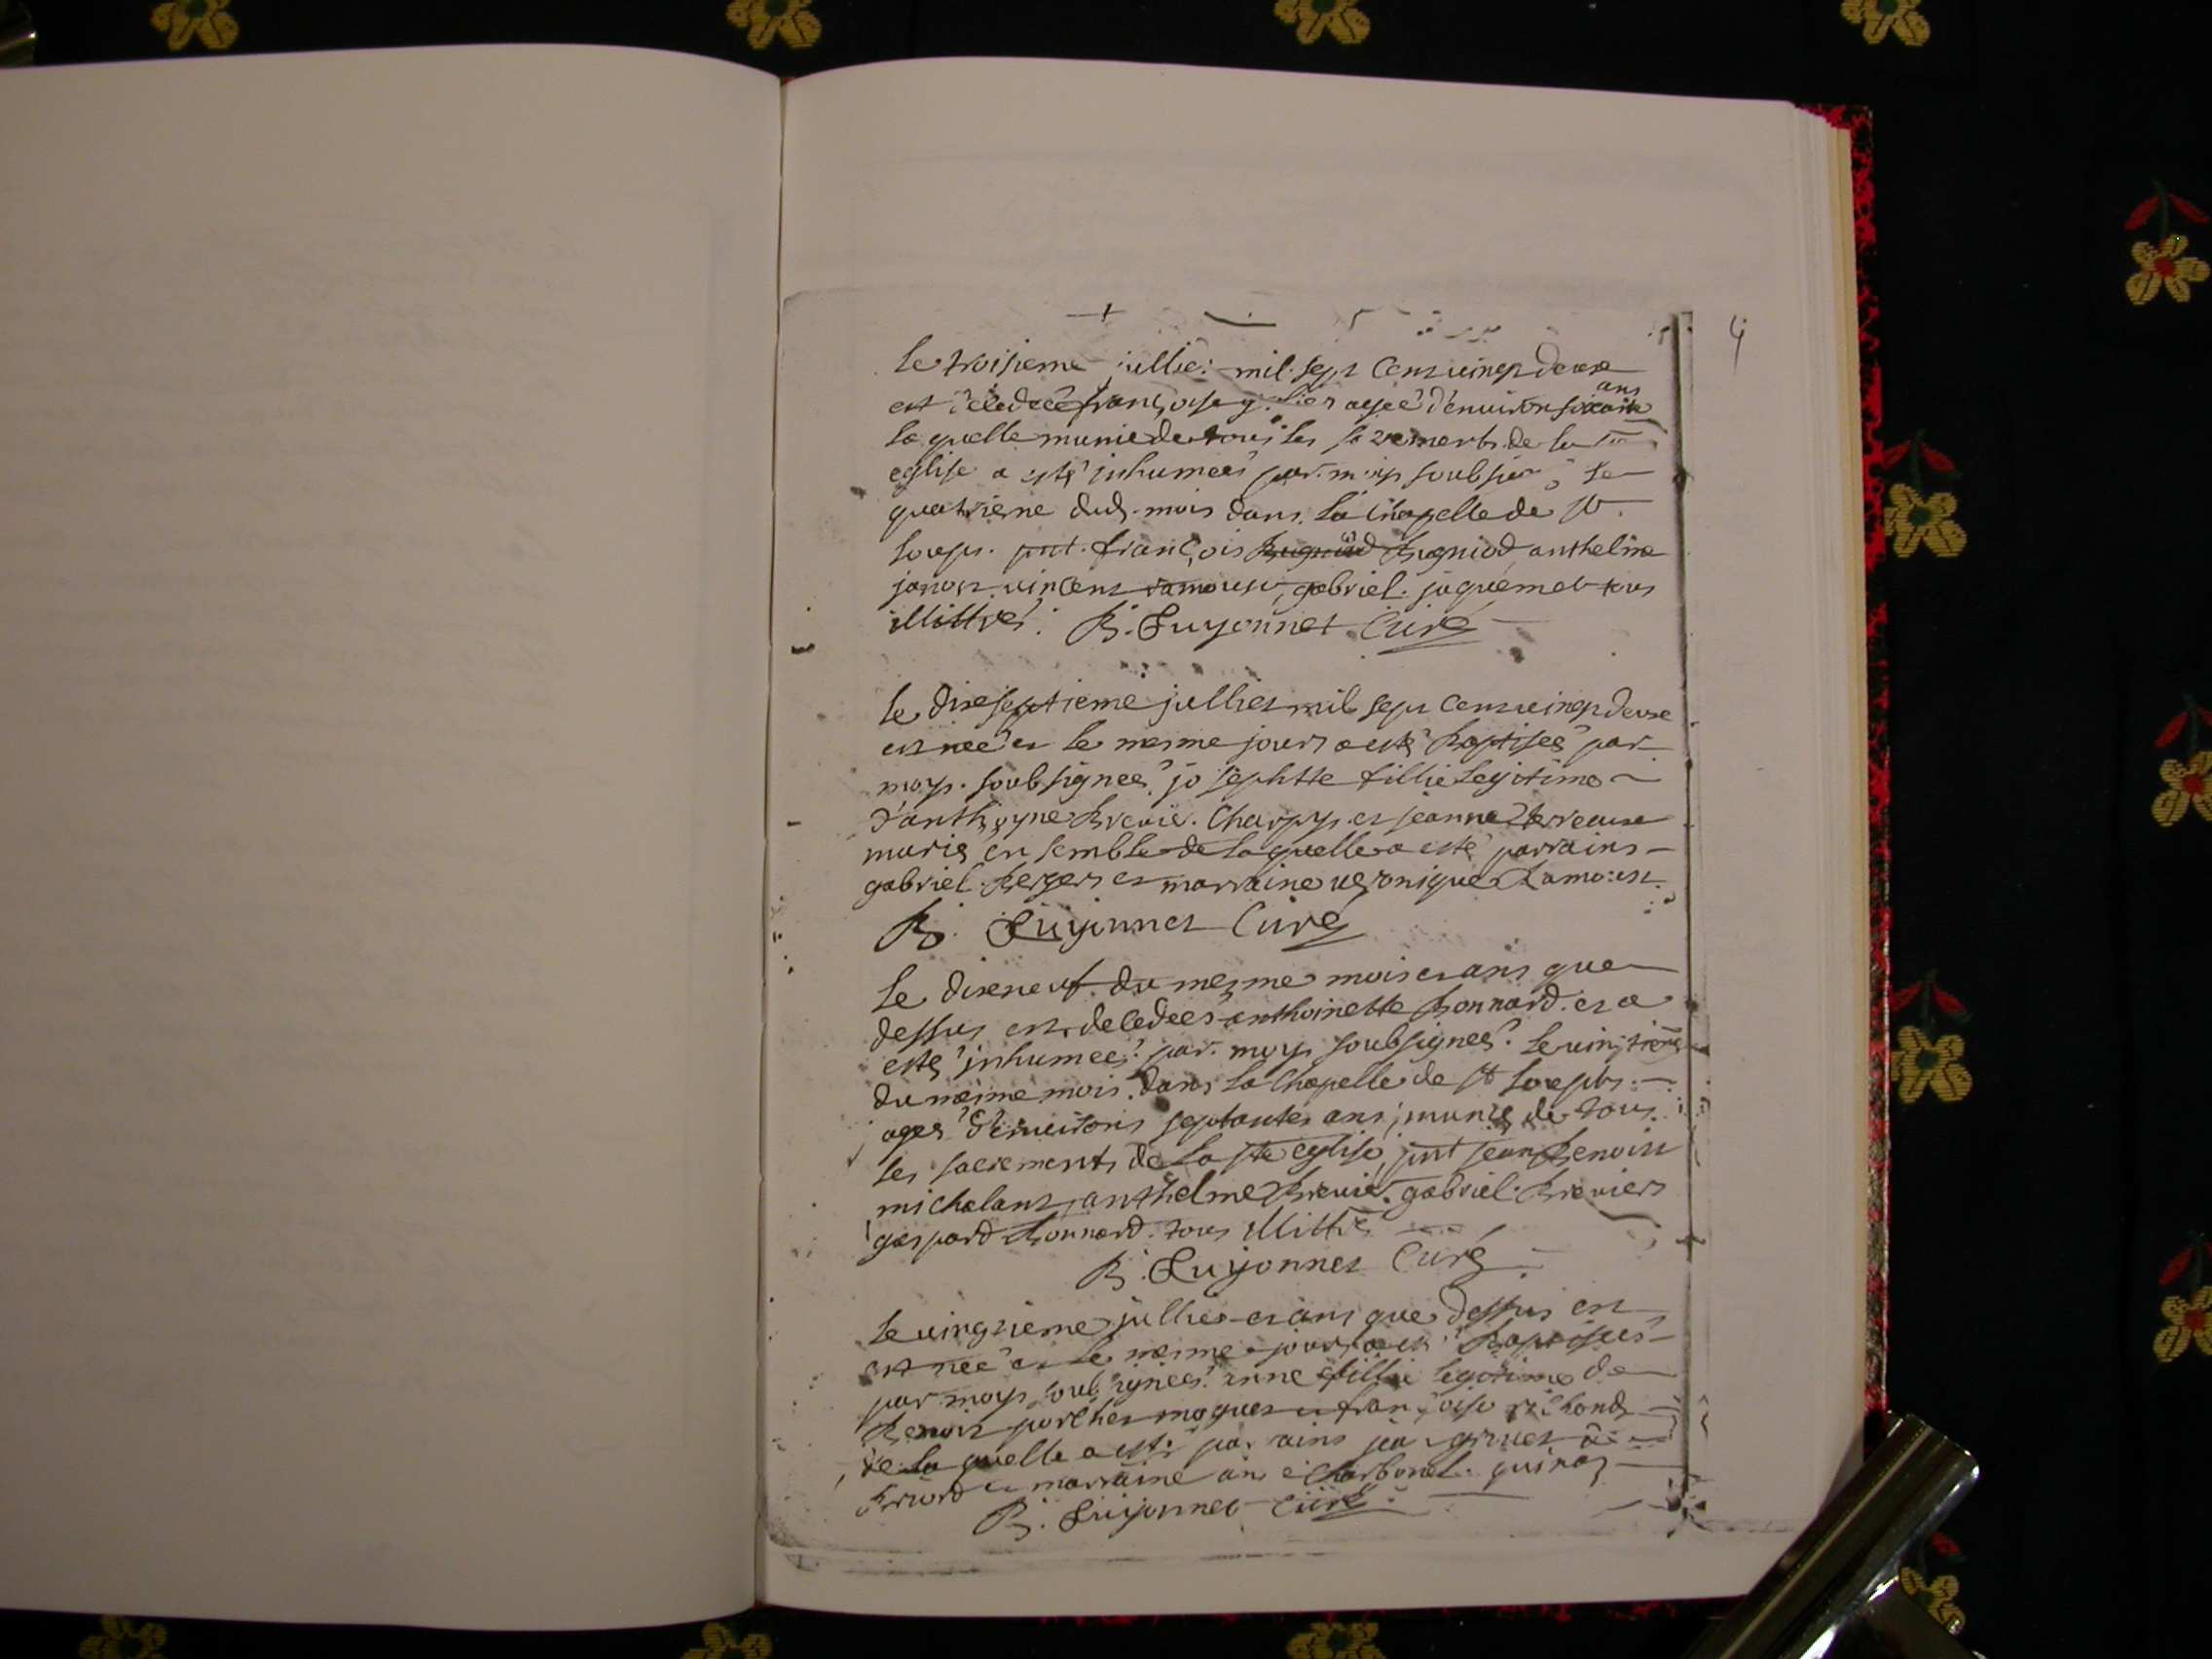 4
le troisieme jullie: mil sept cent vingt deux
est decedeé françoise ageé d'environ soixante ans
la quelle munie de tous les sacrements de la ste
eglise a esté inhumeé par moy soubsigné le
quatrieme dud. mois dans la chapelle de st
Joseph. pnt. françois Hugniod Hugniod anthelme
janon vincent ramoux, gabriel jaquemet tous
illittrés. B. Guyonnet Curé
le dixseptieme jullies mil sept cent vingt deux
est neé et le mesme jours a esté baptiseé par
moy soubsigneé josephtte fillie legitime
d'anthoyne brevie. Charpy et jeanne
mariés ensemble de la quelle a esté parrains
gabriel berger et marraine veronique Ramoux
B. Guyonnet Curé
le dixneuf du mesme mois et ans que
dessus est decedeés anthoinette bonnard. et a
esté inhumeé par moy soubsigneé le vingtieme
du mesme mois dans la chapelle de st Joseph.
ageé d'environs septantes ans, munie de tous
les sacrements de la ste eglise, pnt jean benoist
michalant, anthelme brevie. gabriel breviers
gaspard bonnard. tous illittrés
B. Guyonnet Curé
le vingtieme jullies et ans que dessus est
est neé et le mesme jours a esté baptiseé
par moy soubsigneé anne fillie legitime de
benoit porcher maques et françoise richond
de la quelle a esté parrains
et marraine anne Charbonet.
B. Guyonnet Curé